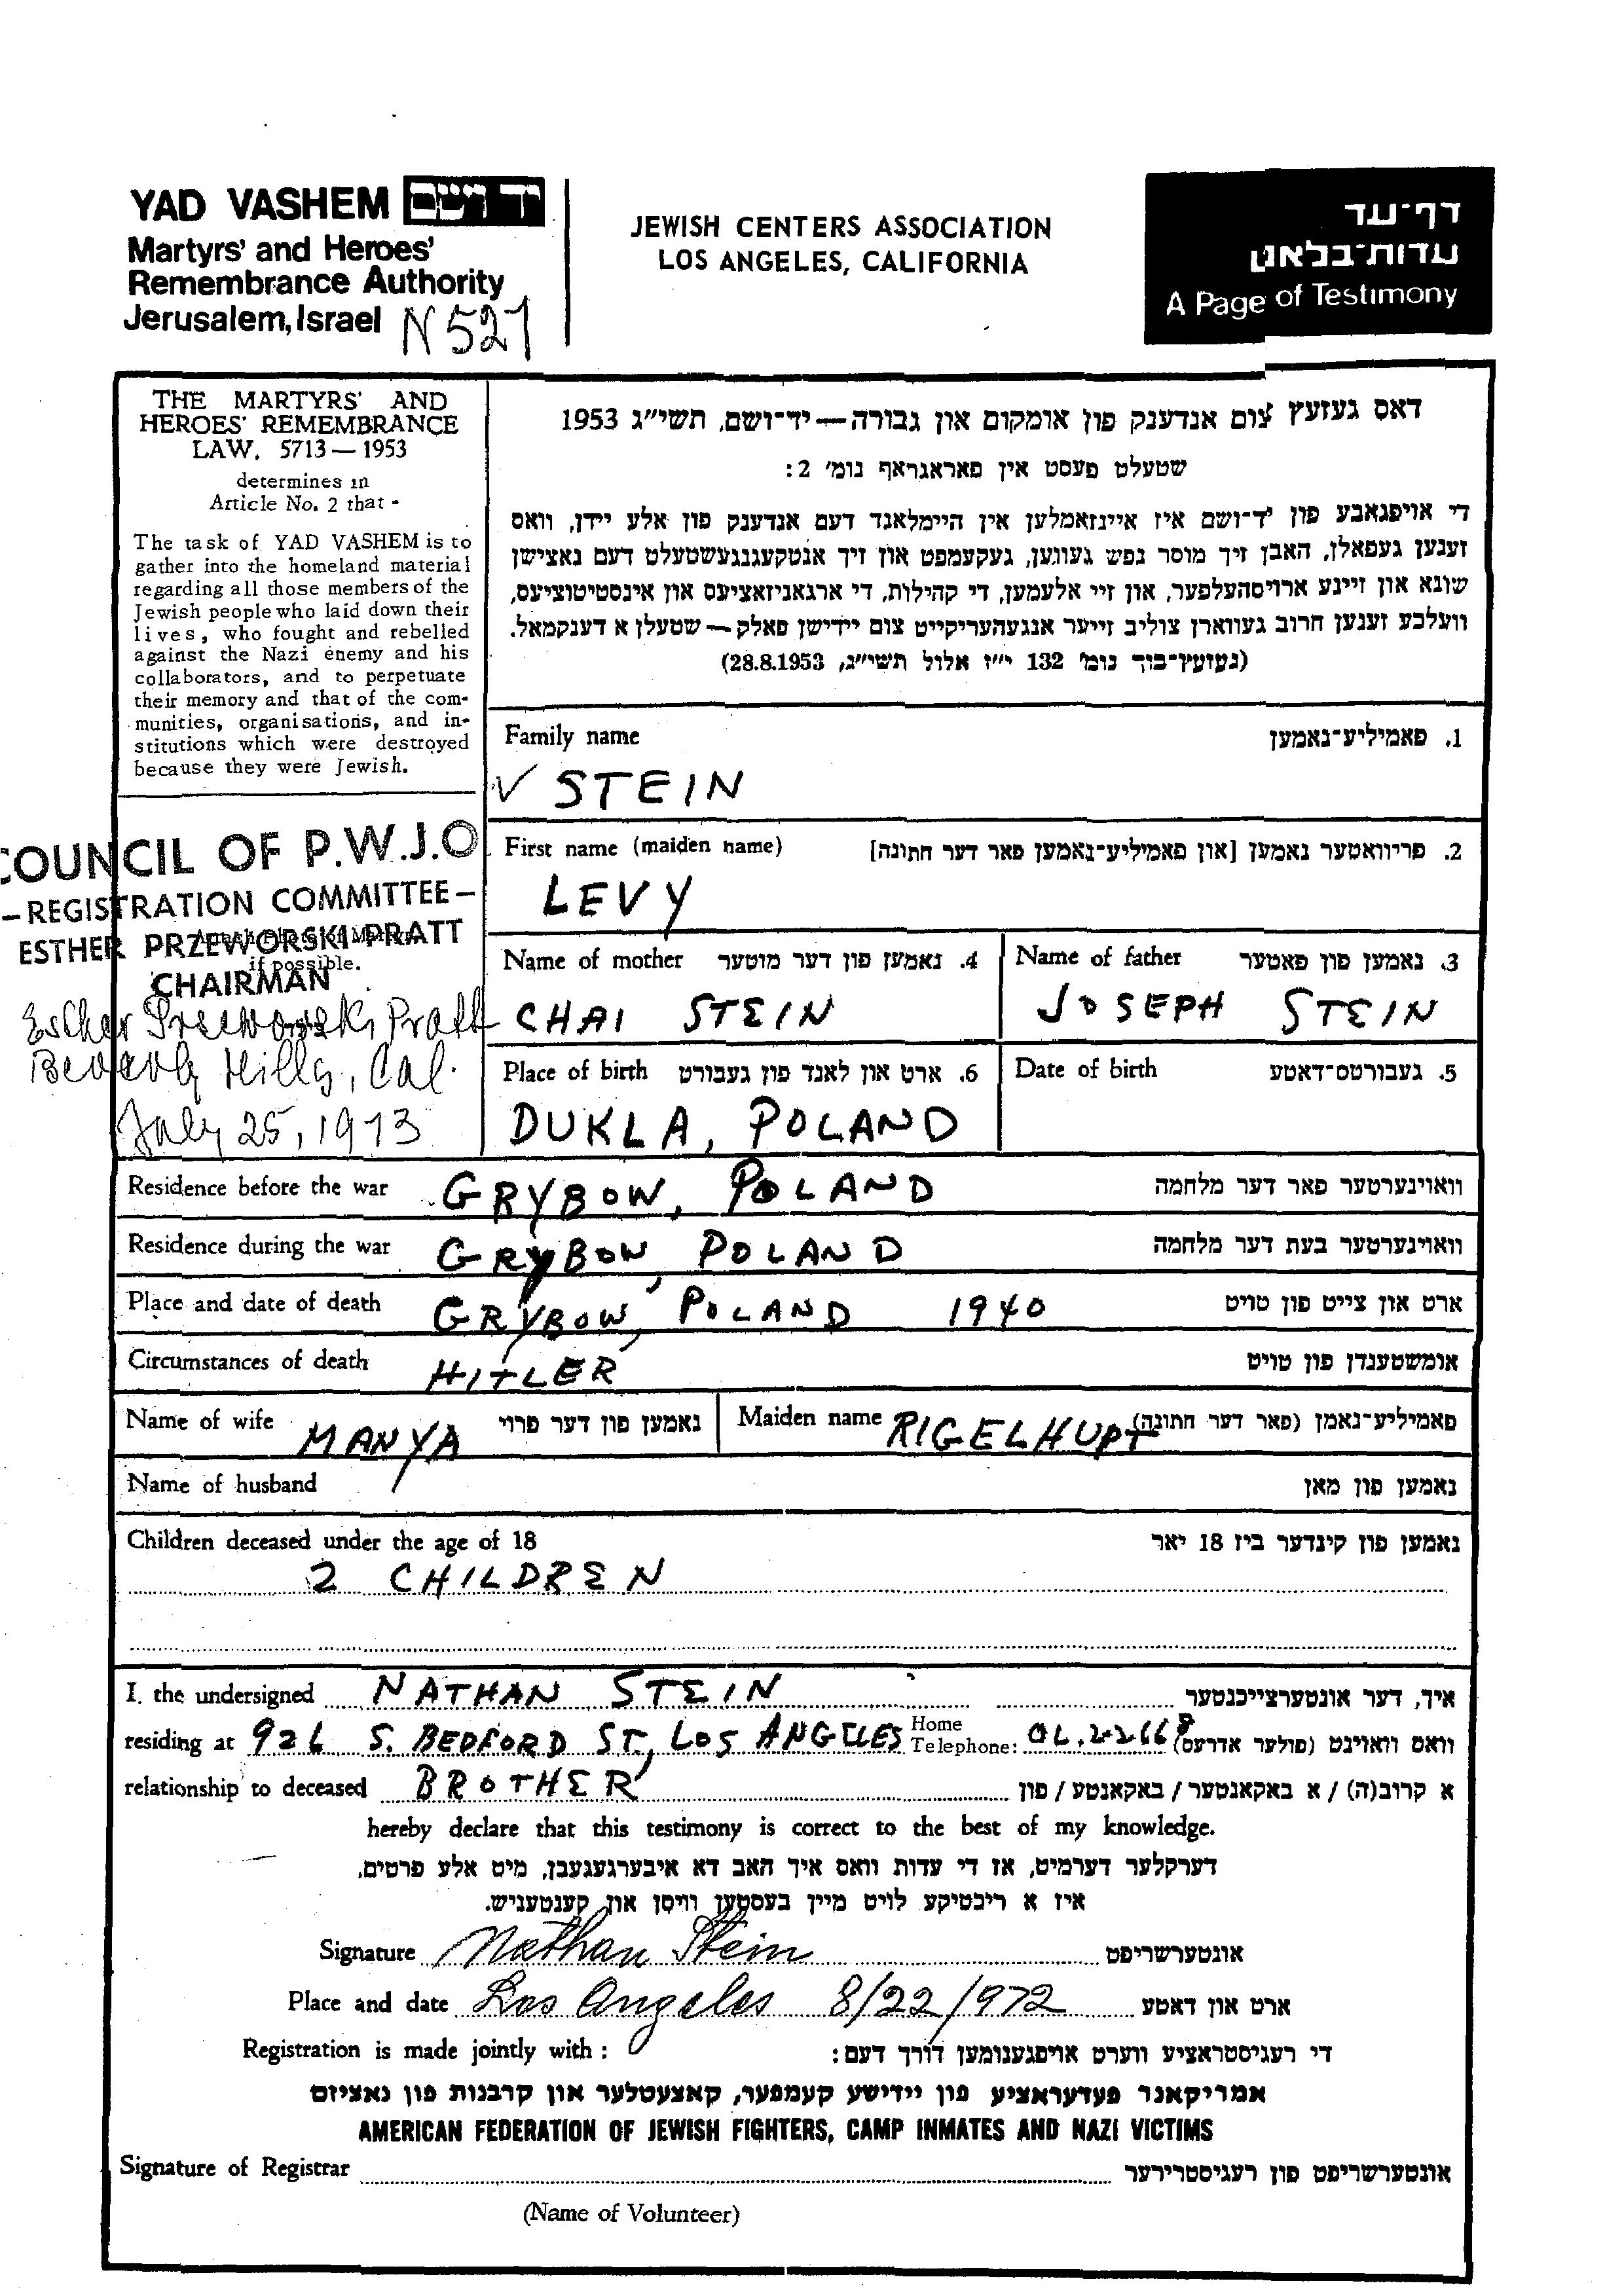 YAD VASHEM יד ושם
Martyrs' and Heroes'
Remembrance Authority
Jerusalem, Israel
N 521
JEWISH CENTERS ASSOCIATION
LOS ANGELES, CALIFORNIA
דף־עד
עדות־בלאט
A Page of Testimony
THE MARTYRS' AND
HEROES' REMEMBRANCE
LAW, 5713 — 1953
determines in
Article No. 2 that -
The task of YAD VASHEM is to
gather into the homeland material
regarding all those members of the
Jewish people who laid down their
lives, who fought and rebelled
against the Nazi enemy and his
collaborators, and to perpetuate
their memory and that of the com-
munities, organisations, and in-
stitutions which were destroyed
because they were Jewish.
COUNCIL OF P.W.J.O.
— REGISTRATION COMMITTEE —
ESTHER PRZEWORSKI-PRATT
if possible.
CHAIRMAN
Esther Przeworski Pratt
Beverly Hills, Cal.
July 25, 1973
דאס געזעץ צום אנדענק פון אומקום און גבורה — יד־ושם, תשי״ג 1953
שטעלט פעסט אין פאראגראף נומ׳ 2:
די אויפגאבע פון יד־ושם איז איינזאמלען אין היימלאנד דעם אנדענק פון אלע יידן, וואס
זענען געפאלן, האבן זיך מוסר נפש געווען, געקעמפט און זיך אנטקעגנגעשטעלט דעם נאצישן
שונא און זיינע ארויסהעלפער, און זיי אלעמען, די קהילות, די ארגאניזאציעס און אינסטיטוציעס,
וועלכע זענען חרוב געווארן צוליב זייער אנגעהעריקייט צום יידישן פאלק — שטעלן א דענקמאל.
(געזעץ־בוך נומ׳ 132 י״ז אלול תשי״ג, 28.8.1953)
Family name 1. פאמיליע־נאמען
✓ STEIN
First name (maiden name) 2. פריוואטער נאמען [און פאמיליע־נאמען פאר דער חתונה]
LEVY
Name of mother 4. נאמען פון דער מוטער
CHAI STEIN
Name of father 3. נאמען פון פאטער
JOSEPH STEIN
Place of birth 6. ארט און לאנד פון געבורט
DUKLA, POLAND
Date of birth 5. געבורטס־דאטע
Residence before the war GRYBOW, POLAND וואוינערטער פאר דער מלחמה
Residence during the war GRYBOW, POLAND וואוינערטער בעת דער מלחמה
Place and date of death GRYBOW, POLAND 1940 ארט און צייט פון טויט
Circumstances of death HITLER אומשטענדן פון טויט
Name of wife MANYA נאמען פון דער פרוי Maiden name RIGELHUPT פאמיליע־נאמן (פאר דער חתונה)
Name of husband נאמען פון מאן
Children deceased under the age of 18 נאמען פון קינדער ביז 18 יאר
2 CHILDREN
I, the undersigned NATHAN STEIN איך, דער אונטערצייכנטער
residing at 926 S. BEDFORD ST., LOS ANGELES Home Telephone: OL.2-2668 וואס וואוינט (פולער אדרעס)
relationship to deceased BROTHER א קרוב(ה) / א באקאנטער / באקאנטע / פון
hereby declare that this testimony is correct to the best of my knowledge.
דערקלער דערמיט, אז די עדות וואס איך האב דא איבערגעגעבן, מיט אלע פרטים,
איז א ריכטיקע לויט מיין בעסטען וויסן און קענטעניש.
Signature Nathan Stein אונטערשריפט
Place and date Los Angeles 8/22/1972 ארט און דאטע
Registration is made jointly with : די רעגיסטראציע ווערט אויפגענומען דורך דעם:
אמריקאנר פעדעראציע פון יידישע קעמפער, קאצעטלער און קרבנות פון נאציזם
AMERICAN FEDERATION OF JEWISH FIGHTERS, CAMP INMATES AND NAZI VICTIMS
Signature of Registrar אונטערשריפט פון רעגיסטרירער
(Name of Volunteer)